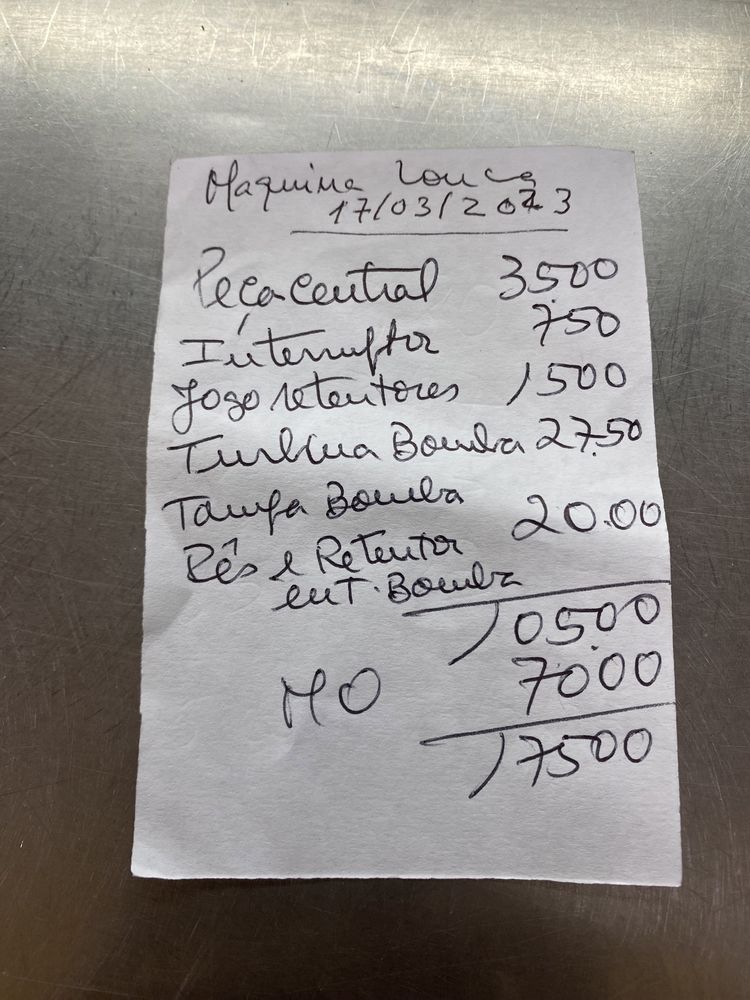 Maquina Louça
17/03/2023
Peça central 3.500
Interruptor 750
Jogo retentores 1500
Turbina Bomba 27.50
Tampa Bomba
20.00
Rês e Retentor
enT. Bomba
10.500
MO 7.000
17500